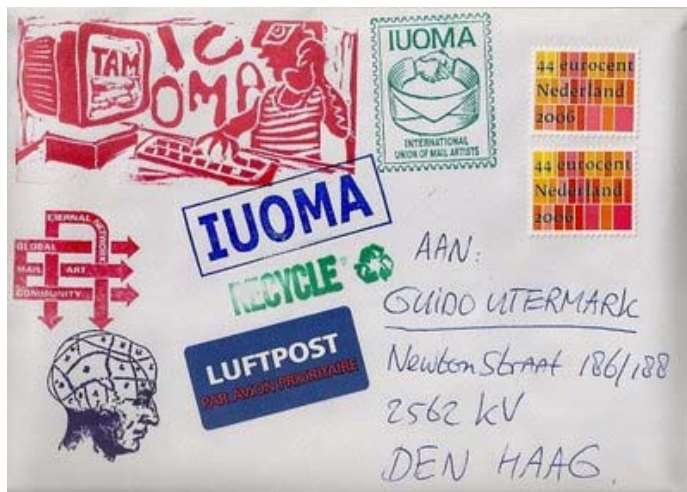 TAM
IUOMA
IUOMA
INTERNATIONAL
UNION OF MAIL ARTISTS
44 eurocent
Nederland
2006
44 eurocent
Nederland
2006
IUOMA
RECYCLE
ETERNAL NETWORK
GLOBAL
MAIL ART
COMMUNITY
LUFTPOST
PAR AVION PRIORITAIRE
AAN:
GUIDO UTERMARK
Newton Straat 186/188
2562 KV
DEN HAAG.